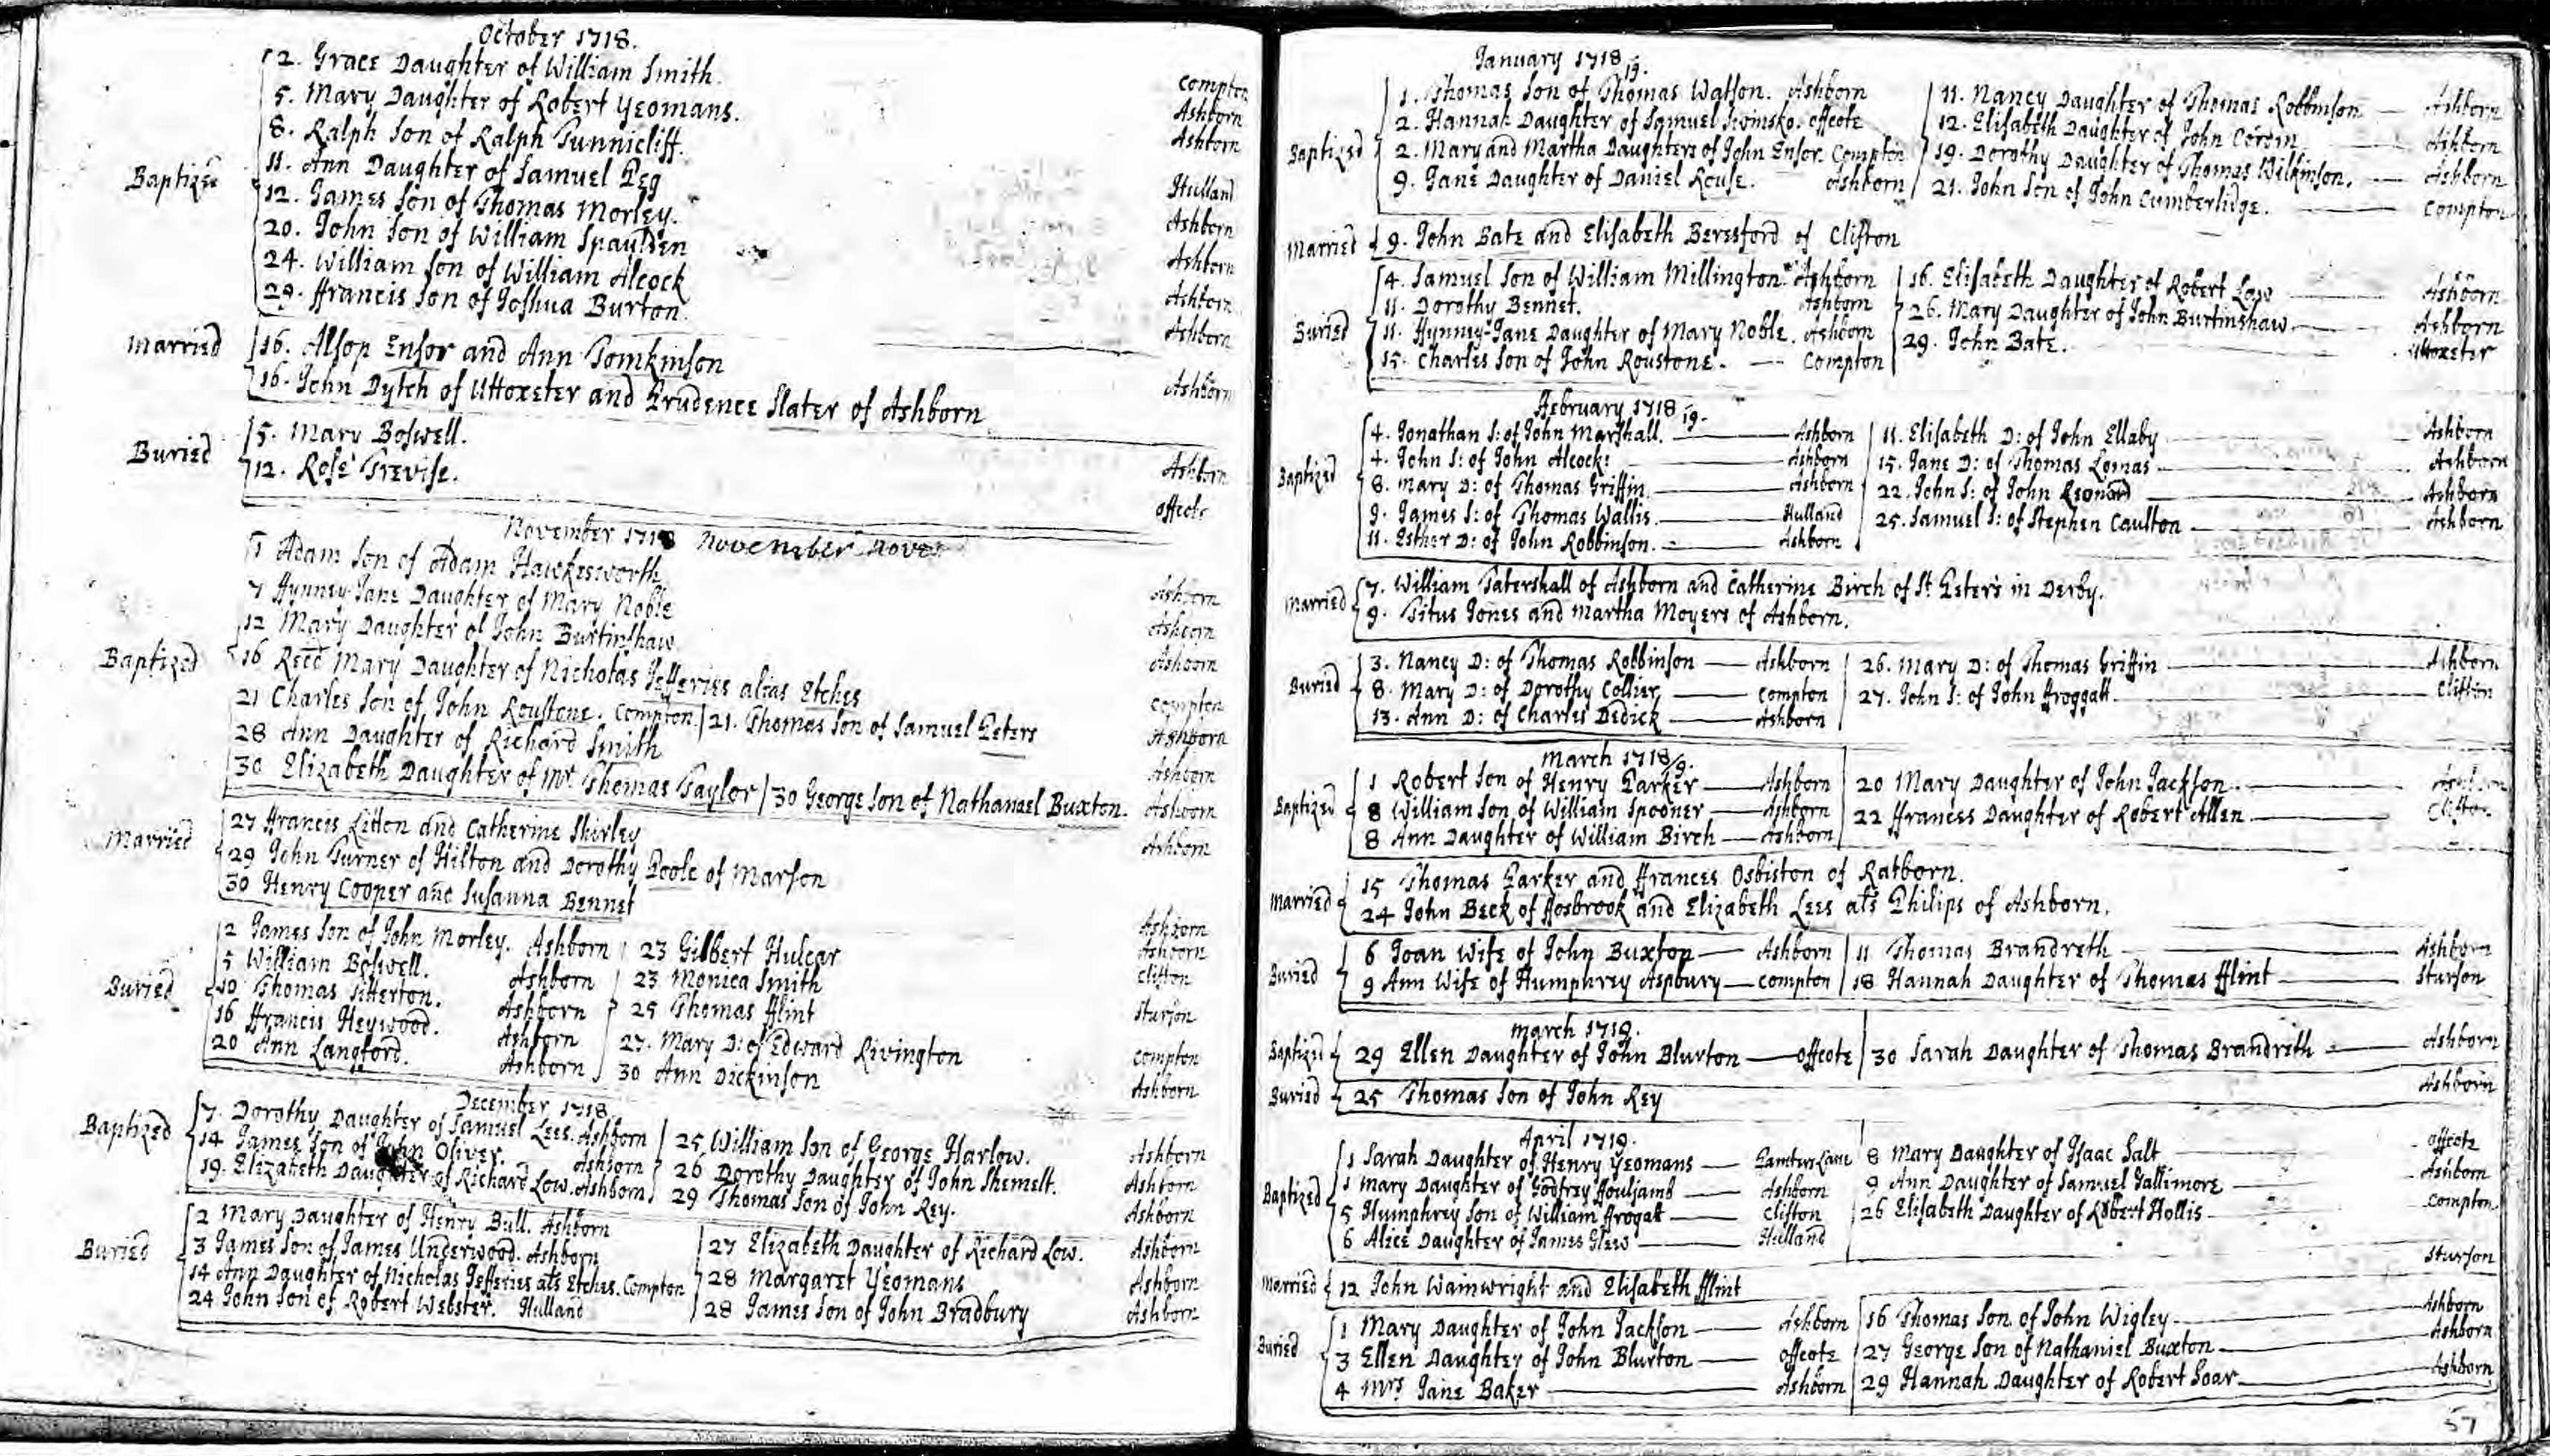 October 1718.
Baptized
2. Grace Daughter of William Smith. Compton
5. Mary Daughter of Robert Yeomans. Ashborn
8. Ralph Son of Ralph Tunnicliff. Ashborn
11. Ann Daughter of Samuel Peg Hulland
12. James Son of Thomas Morley. Ashborn
20. John Son of William Spaulden Ashborn
24. William Son of William Alcock Ashborn
29. ffrancis Son of Joshua Burton. Ashborn
Married
16. Alsop Ensor and Ann Tomkinson Ashborn
16. John Dytch of Uttoxeter and Prudence Slater of Ashborn
Buried
5. Mary Boswell. Ashborn
12. Rose Trevise. Offcote
November 1718 November Novem
Baptized
1 Adam Son of Adam Hawkesworth Ashborn
7 Hynney-Jane Daughter of Mary Noble Ashborn
12 Mary Daughter of John Burtinshaw Ashborn
16 Recd Mary Daughter of Nicholas Jefferies alias Etches Compton
21 Charles Son of John Roustone. Compton. 21. Thomas Son of Samuel Peters Ashborn
28 Ann Daughter of Richard Smith Ashborn
30 Elizabeth Daughter of Mr. Thomas Taylor 30 George Son of Nathanael Buxton. Ashborn
Married
27 ffrancis Litton and Catherine Shirley Ashborn
29 John Turner of Hilton and Dorothy Poole of Marson
30 Henry Cooper and Susanna Bennet Ashborn
Buried
2 James Son of John Morley. Ashborn 23 Gilbert Hulcar Ashborn
5 William Boswell. Ashborn 23 Monica Smith Clifton
10 Thomas Titterton. Ashborn 25 Thomas fflint Sturson
16 ffrancis Heywood. Ashborn 27. Mary D: of Edward Rivington Compton
20 Ann Langford. Ashborn 30 Ann Dickinson Ashborn
December 1718.
Baptized
7. Dorothy Daughter of Samuel Lees. Ashborn 25 William Son of George Harlow. Ashborn
14 James Son of John Oliver. Ashborn 26 Dorothy Daughter of John Shemelt. Ashborn
19. Elizabeth Daughter of Richard Low. Ashborn. 29 Thomas Son of John Rey. Ashborn
Buried
2 Mary Daughter of Henry Bull. Ashborn 27 Elizabeth Daughter of Richard Low. Ashborn
3 James Son of James Underwood. Ashborn 28 Margaret Yeomans Ashborn
14 Ann Daughter of Nicholas Jefferies als Etches. Compton 28 James Son of John Bradbury Ashborn
24 John Son of Robert Webster. Hulland
January 1718/19.
Baptized
1. Thomas Son of Thomas Watson. Ashborn 11. Nancy Daughter of Thomas Robbinson Ashborn
2. Hannah Daughter of Samuel Offcote 12. Elisabeth Daughter of John Corbin Ashborn
2. Mary and Martha Daughters of John Ensor. Compton 19. Dorothy Daughter of Thomas Wilkinson. Ashborn
9. Jane Daughter of Daniel Rouse. Ashborn 21. John Son of John Cumberlidge. Compton
Married
9. John Bate and Elisabeth Beresford of Clifton
Buried
4. Samuel Son of William Millington. Ashborn 16. Elisabeth Daughter of Robert Low Ashborn
11. Dorothy Bennet. Ashborn 26. Mary Daughter of John Burtinshaw Ashborn
11. Hynney-Jane Daughter of Mary Noble. Ashborn 29. John Bate. Uttoxeter
15. Charles Son of John Roustone. Compton
ffebruary 1718/19.
Baptized
4. Jonathan S: of John Marshall. Ashborn 11. Elisabeth D: of John Ellaby Ashborn
4. John S: of John Alcock: Ashborn 15. Jane D: of Thomas Lomas Ashborn
8. Mary D: of Thomas Griffin Ashborn 22. John S: of John Leonard Ashborn
9. James S: of Thomas Wallis. Hulland 25. Samuel S: of Stephen Caulton Ashborn
11. Esther D: of John Robbinson. Ashborn
Married
7. William Tatershall of Ashborn and Catherine Birch of St Peters in Derby.
9. Titus Jones and Martha Moyers of Ashborn.
Buried
3. Nancy D: of Thomas Robbinson Ashborn 26. Mary D: of Thomas Griffin Ashborn
8. Mary D: of Dorothy Collier, Compton 27. John S: of John ffroggatt Clifton
13. Ann D: of Charles Dedick Ashborn
March 1718/9.
Baptized
1 Robert Son of Henry Parker Ashborn 20 Mary Daughter of John Jackson Ashborn
8 William Son of William Spooner Ashborn 22 ffrances Daughter of Robert Allen Clifton
8 Ann Daughter of William Birch Ashborn
Married
15 Thomas Parker and ffrances Osbiston of Ratborn.
24 John Beck of ffosbrook and Elizabeth Lees als Philips of Ashborn.
Buried
6 Joan Wife of John Buxton Ashborn 11 Thomas Brandreth Ashborn
9 Ann Wife of Humphrey Aspbury Compton 18 Hannah Daughter of Thomas fflint Sturson
March 1719.
Baptized
29 Ellen Daughter of John Blurton Offcote 30 Sarah Daughter of Thomas Brandreth Ashborn
Buried
25 Thomas Son of John Rey Ashborn
April 1719.
Baptized
1 Sarah Daughter of Henry Yeomans Lane 8 Mary Daughter of Isaac Salt Offcote
1 Mary Daughter of Godfrey ffouljamb Ashborn 9 Ann Daughter of Samuel Gallimore Ashborn
5 Humphrey Son of William ffrogatt Clifton 26 Elisabeth Daughter of Robert Hollis Compton
6 Alice Daughter of James Glew Hulland
Married
12 John Wainwright and Elisabeth fflint Sturson
Buried
1 Mary Daughter of John Jackson Ashborn 16 Thomas Son of John Wigley Ashborn
3 Ellen Daughter of John Blurton Offcote 27 George Son of Nathaniel Buxton Ashborn
4 Mrs Jane Baker Ashborn 29 Hannah Daughter of Robert Soar Ashborn
57